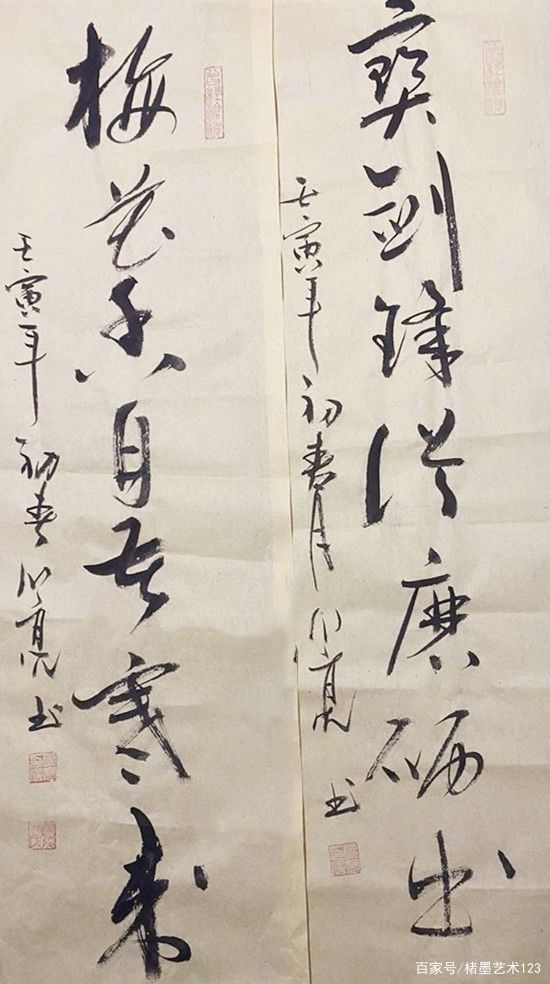 宝剑锋从磨砺出
壬寅年初春月 亮 书
梅花香自苦寒来
壬寅年初春 亮 书
百家号/楮墨艺术123